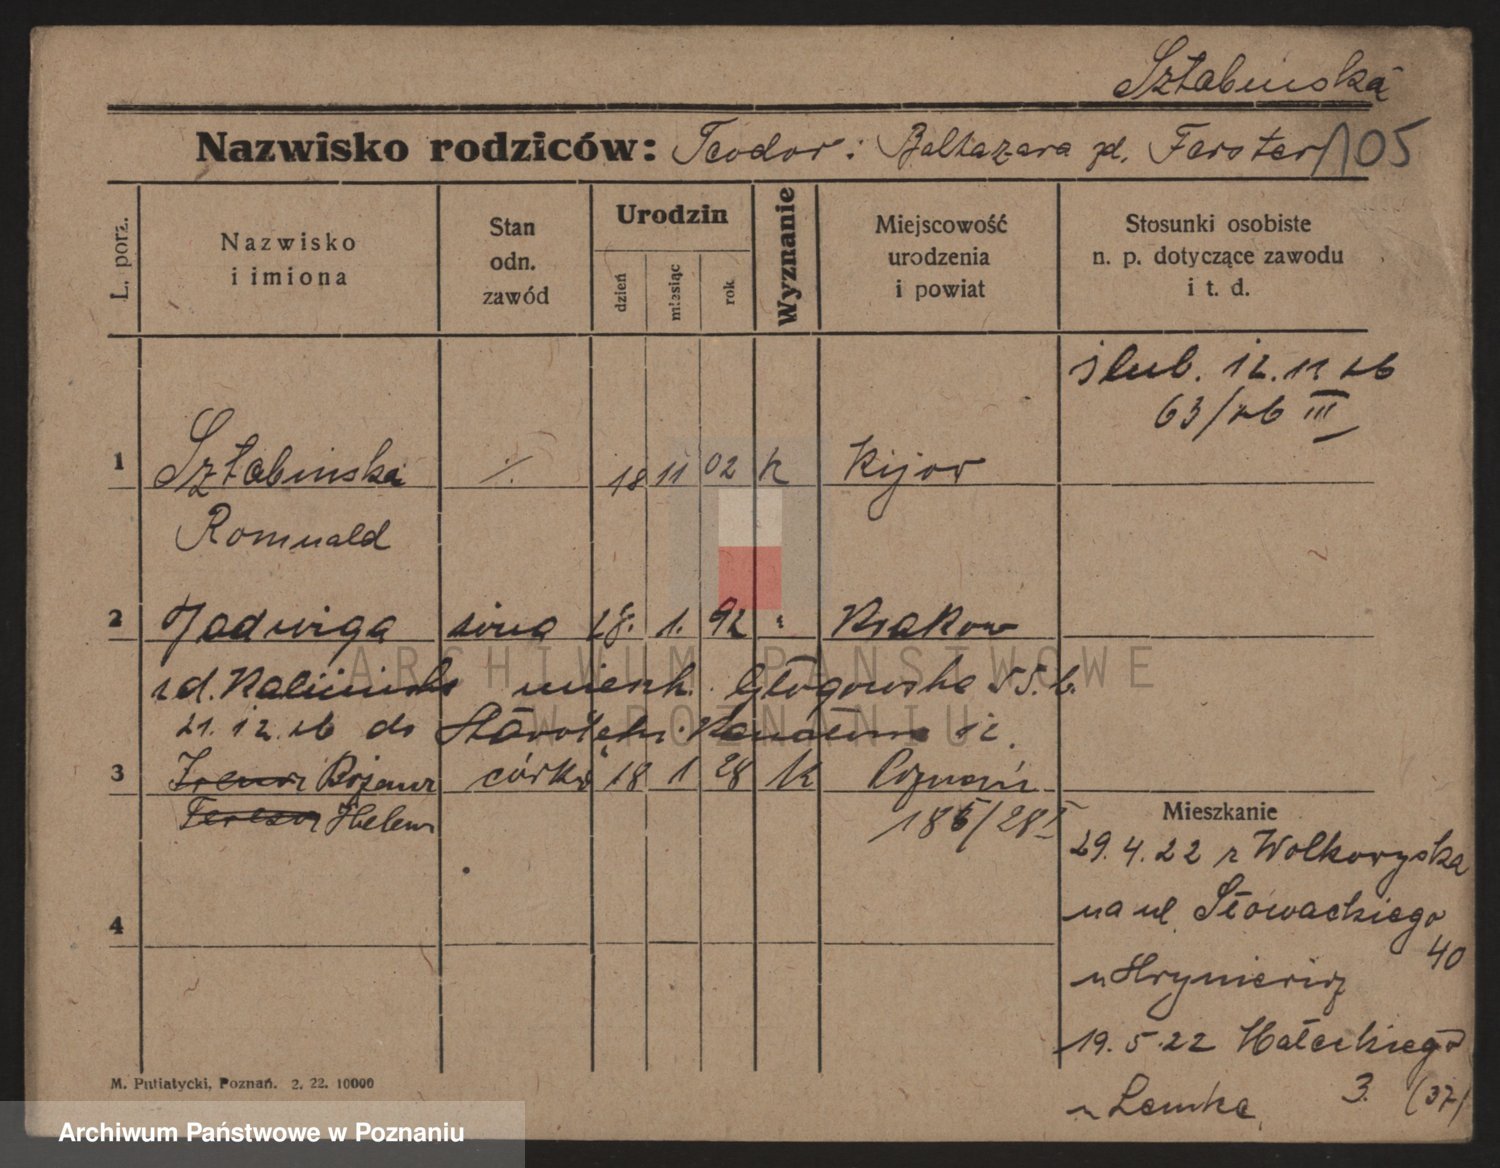 Sztabinska
Nazwisko rodziców: Teodor i Baltazara zd. Ferster 105
L. porz.
Nazwisko i imiona
Stan odn. zawód
Urodzin
dzień
miesiąc
rok
Wyznanie
Miejscowość urodzenia i powiat
Stosunki osobiste n. p. dotyczące zawodu i t. d.
ślub. 12.11 26
63/26 III
1 Sztabinska ./. 18 11 02 k Kijow
Romuald
2 Jadwiga żona 28. 1. 92 " Krakow
zd. miesk. Głogowska 55.b.
21.12.26 do 12.
3 Irena Bożena córka 18 1 28 k Poznań
Teresa Helena 186/28 I
Mieszkanie
29.4.22 z Wolkowyska
na ul. Słowackiego
40
u
4
19.5.22 Małeckiego
u Lemke 3. (37)
M. Putiatycki, Poznań. 2. 22. 10000
ARCHIWUM PAŃSTWOWE
W POZNANIU
Archiwum Państwowe w Poznaniu